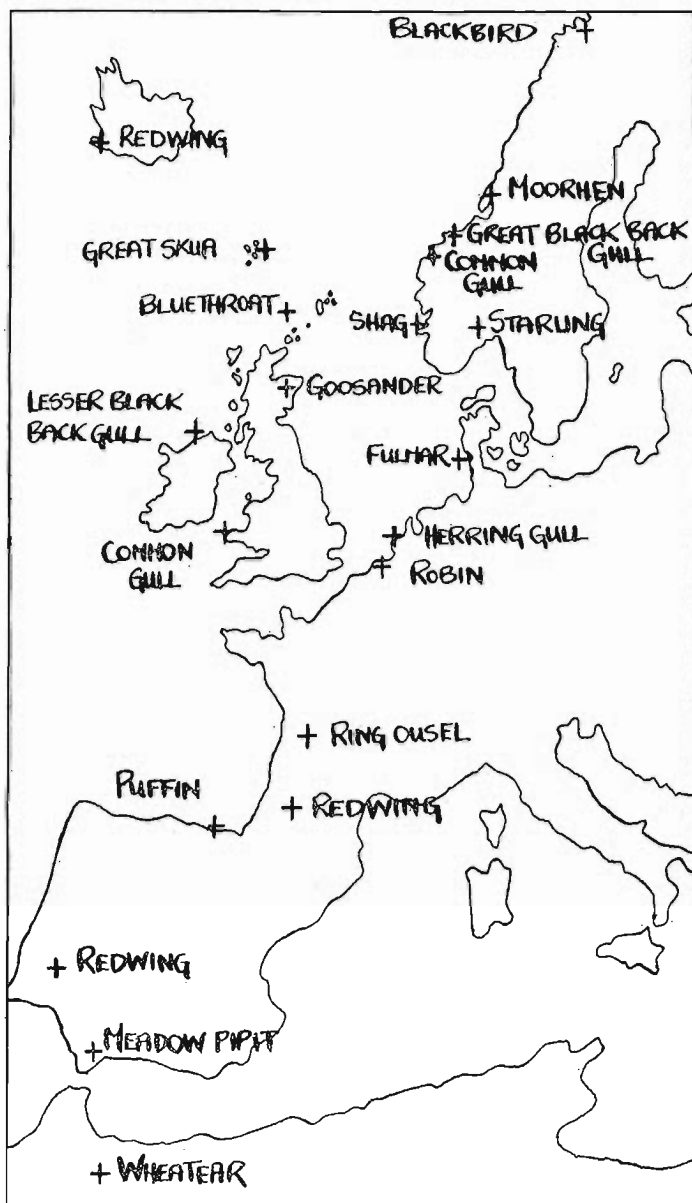 BLACKBIRD
REDWING
MOORHEN
GREAT SKUA
GREAT BLACK BACK
GULL
COMMON
GULL
BLUETHROAT
SHAG
STARLING
GOOSANDER
LESSER BLACK
BACK GULL
FULMAR
COMMON
GULL
HERRING GULL
ROBIN
RING OUSEL
PUFFIN
REDWING
REDWING
MEADOW PIPIT
WHEATEAR